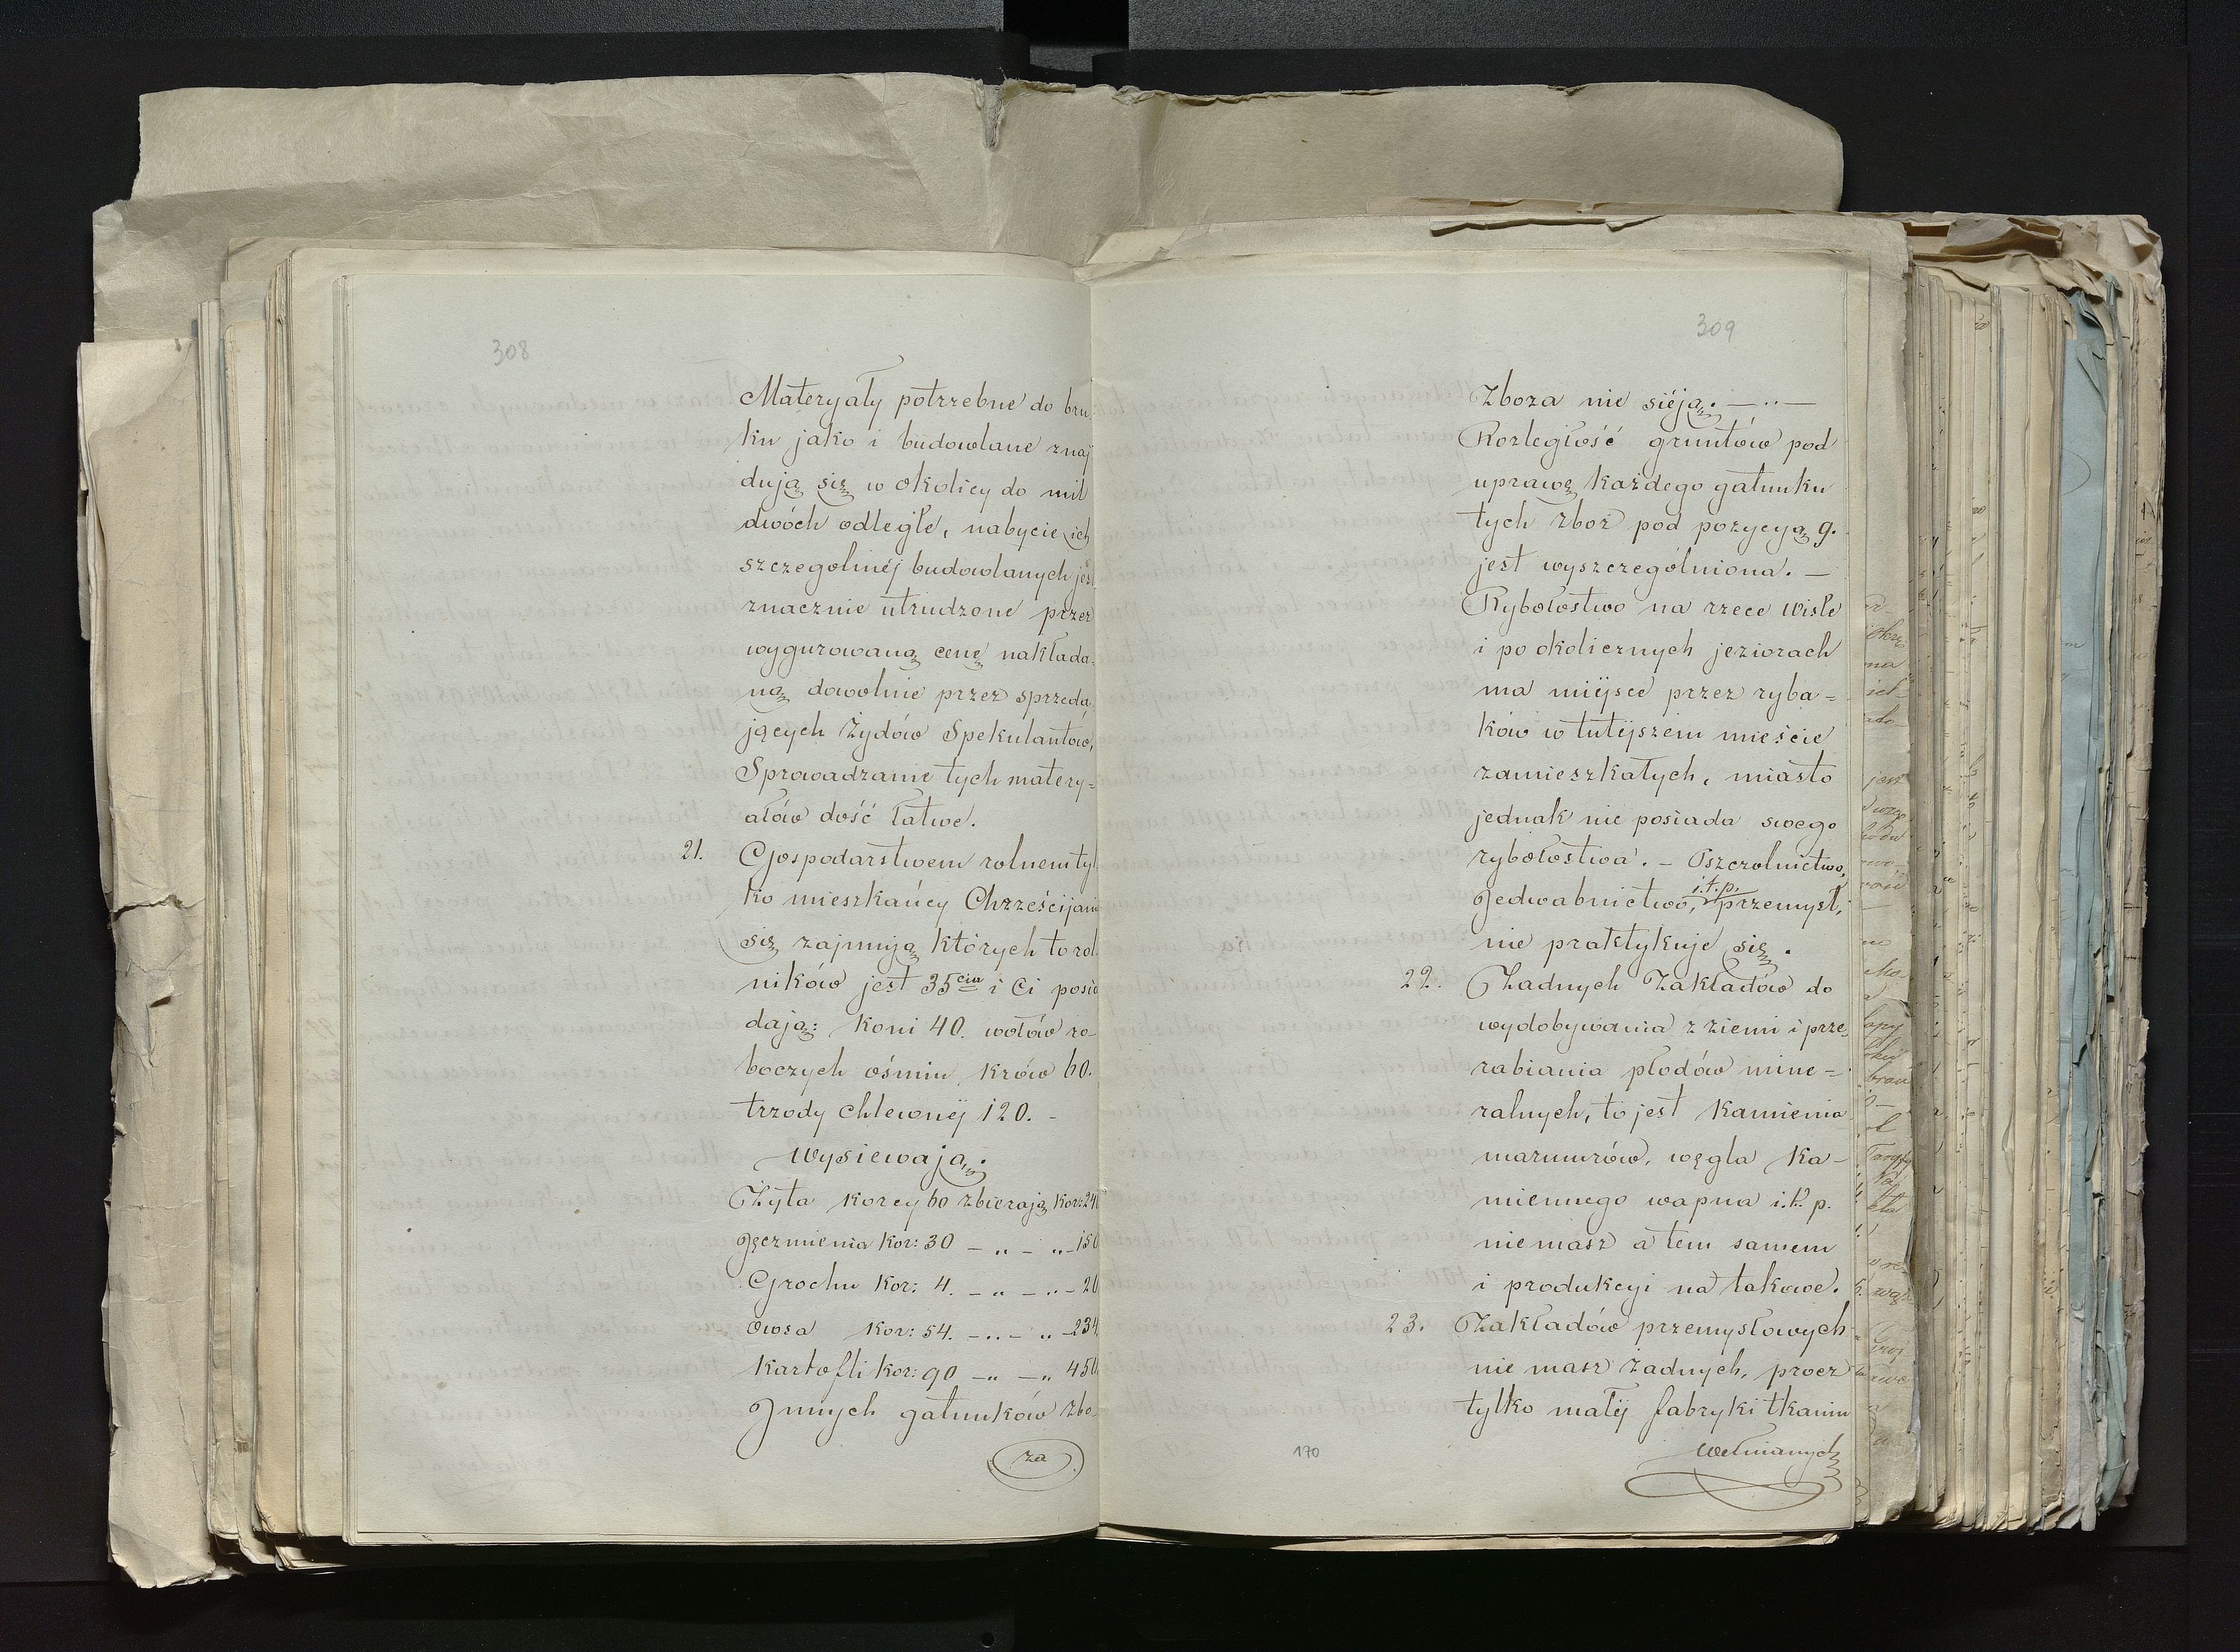 308
Materyały potrzebne do bru-
ku jako i budowlane znaj
dują się w okolicy do mil
dwóch odległe, nabycie ich
szczególniéj budowlanych jest
znacznie utrudzone przez
wygurowaną cenę nakłada-
ną dowolnie przez sprzeda-
jących Żydów Spekulantów,
Sprowadzanie tych matery-
ałów dość łatwe.
21. Gospodarstwem rolnem tyl
ko mieszkańcy Chrześcijanie
się zajmują których to rol-
ników jest 35ciu i Ci posia
dają: koni 40. wołów ro-
boczych ośmiu, krów 60.
trzody chlewnéj 120. -
Wysiewają.
Żyta korcy 60 zbierają kor: 240
Jęczmienia Kor: 30 - „ - „ - 150
Grochu Kor: 4. - „ - „ - 20
Owsa Kor: 54. - „ - „ - 234
Kartofli Kor: 90 - „ - „ 450
Innych gatunków zbo-
za
309
Zboza nie siéją. - „ -
Rozległość gruntów pod
uprawę każdego gatunku
tych zboż pod pozycyą 9.
jest wyszczególniona. -
Rybołostwo na rzece Wiśle
i po okolicznych jeziorach
ma miéjsce przez ryba=
ków w tutéjszem mieście
zamieszkałych, miasto
jednak nie posiada swego
rybołostwa. - Pszczolnictwo,
Jedwabnictwo, i.t.p. przemysł,
nie praktykuje się.
22. Żadnych Zakładów do
wydobywania z ziemi i prze
rabiania płodów mine=
ralnych, to jest Kamienia
marmurów, węgla ka-
miennego wapna i.t.p.
niemasz a tem samem
i produkcyi na takowe.
23. Zakładów przemysłowych
nie masz żadnych, procz
tylko małéj fabryki tkanin
wełnianych
170